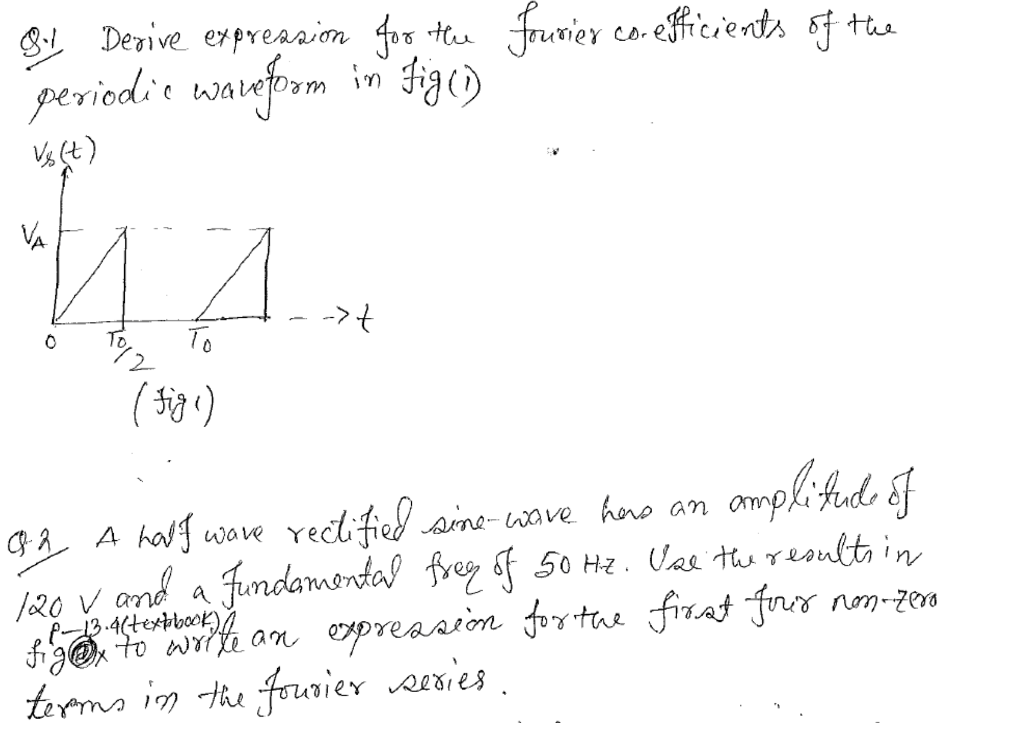 Q.1 Derive expression for the fourier co-efficients of the
periodic waveform in fig(1)
Vs(t)
VA
0 T0/2 T0 - - -> t
(fig 1)
Q.2 A half wave rectified sine-wave has an amplitude of
120 V and a fundamental freq of 50 Hz. Use the results in
P-13.4(textbook)
fig to write an expression for the first four non-zero
terms in the fourier series.